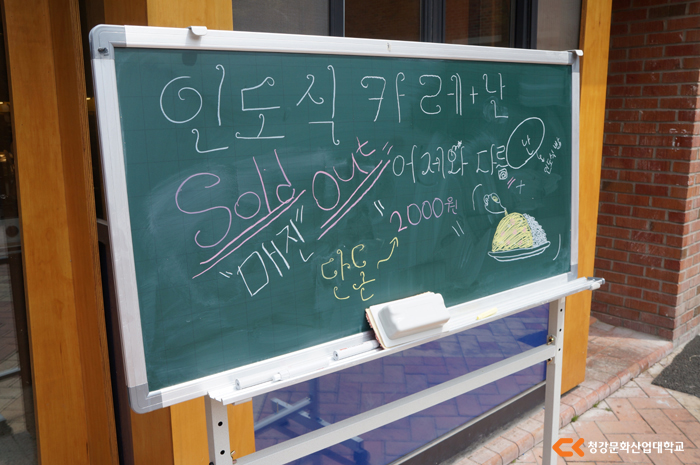 인도식 카레+난
Sold Out
"어제와 다름"
난
"매진"
"2000원"
단돈
청강문화산업대학교